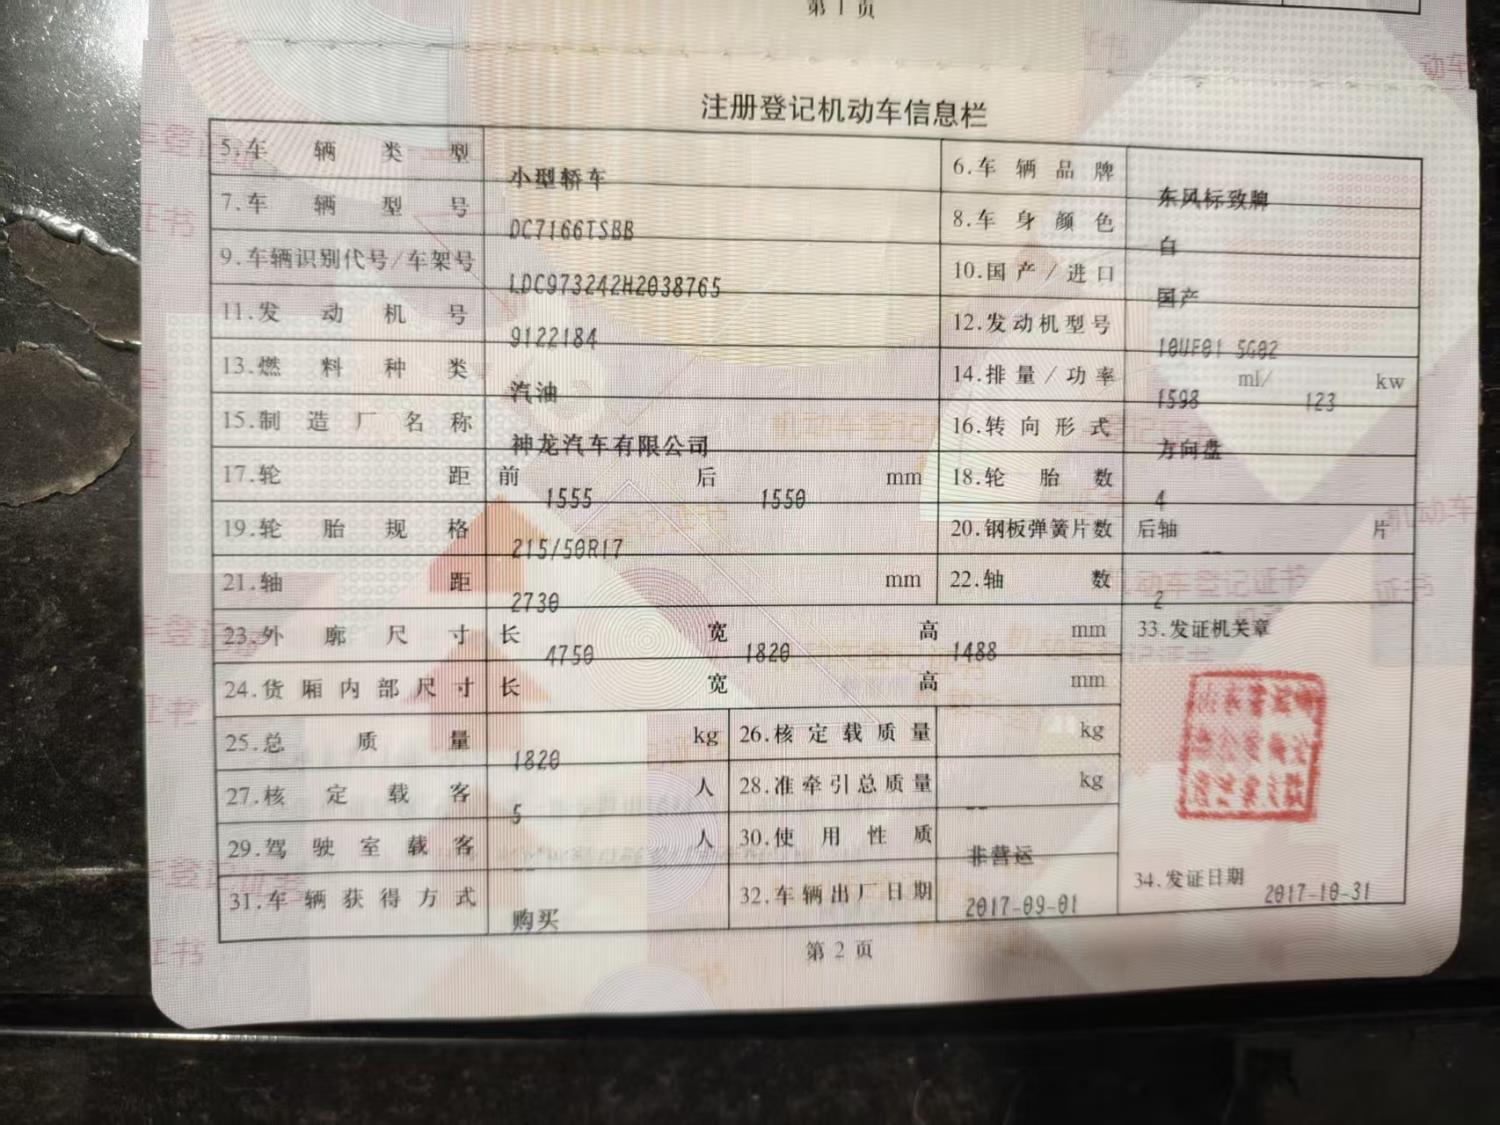 第 1 页
注册登记机动车信息栏
5.车辆类型 小型轿车 6.车辆品牌 东风标致牌
7.车辆型号 DC7166TSBB 8.车身颜色 白
9.车辆识别代号/车架号 LDC973242H2038765 10.国产/进口 国产
11.发动机号 9122184 12.发动机型号 10UF01 5G02
13.燃料种类 汽油 14.排量/功率 1598 ml/ 123 kw
15.制造厂名称 神龙汽车有限公司 16.转向形式 方向盘
17.轮距 前 1555 后 1550 mm 18.轮胎数 4
19.轮胎规格 215/50R17 20.钢板弹簧片数 后轴 -- 片
21.轴距 2730 mm 22.轴数 2
23.外廓尺寸 长 4750 宽 1820 高 1488 mm 33.发证机关章
24.货厢内部尺寸 长 宽 高 mm
25.总质量 1820 kg 26.核定载质量 kg
27.核定载客 5 人 28.准牵引总质量 -- kg
29.驾驶室载客 -- 人 30.使用性质 非营运
31.车辆获得方式 购买 32.车辆出厂日期 2017-09-01 34.发证日期 2017-10-31
第 2 页